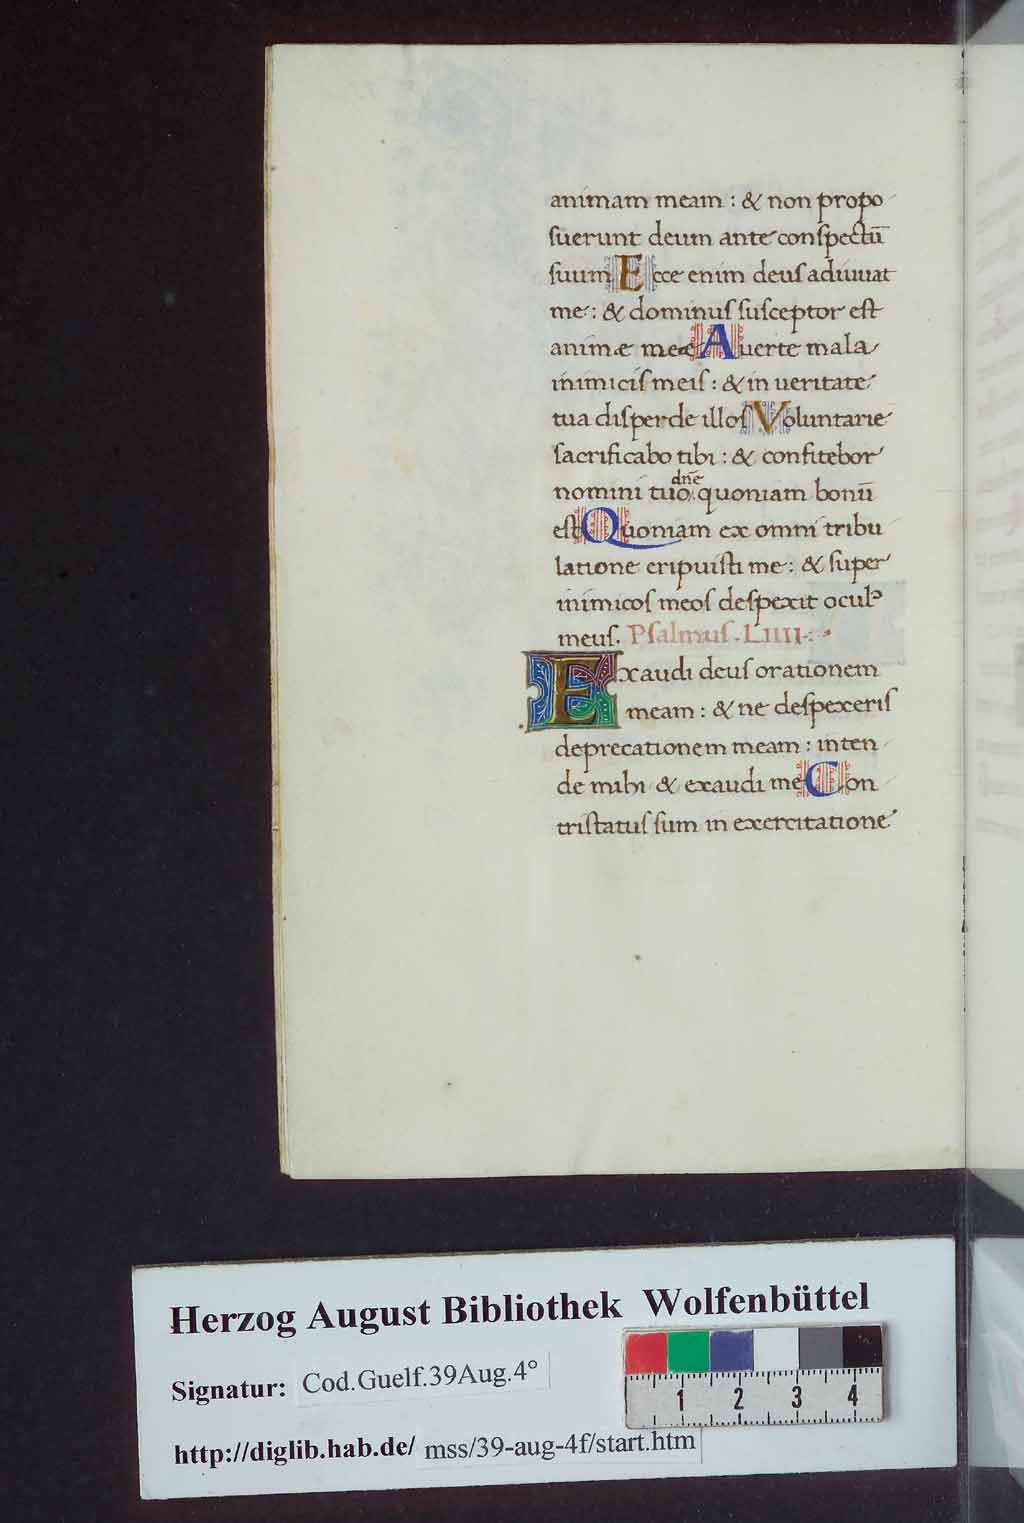 animam meam : & non propo
ſuerunt deum ante conſpectū
ſuum Ecce enim deuſ adiuuat
me : & dominuſ ſuſceptor eſt
animæ meæ Auerte mala
inimiciſ meiſ : & in ueritate
tua diſperde illoſ Voluntarie
ſacrificabo tibi : & confitebor
nomini tuo dn̄e quoniam bonū
eſt Quoniam ex omni tribu
latione eripuiſti me : & ſuper
inimicoſ meoſ deſpexit oculꝰ
meuſ. Pſalmuſ . LIIII .
Exaudi deuſ orationem
meam : & ne deſpexeriſ
deprecationem meam : inten
de mihi & exaudi me Con
triſtatuſ ſum in exercitatione
Herzog August Bibliothek Wolfenbüttel
Signatur: Cod.Guelf.39Aug.4°
http://diglib.hab.de/ mss/39-aug-4f/start.htm
1 2 3 4